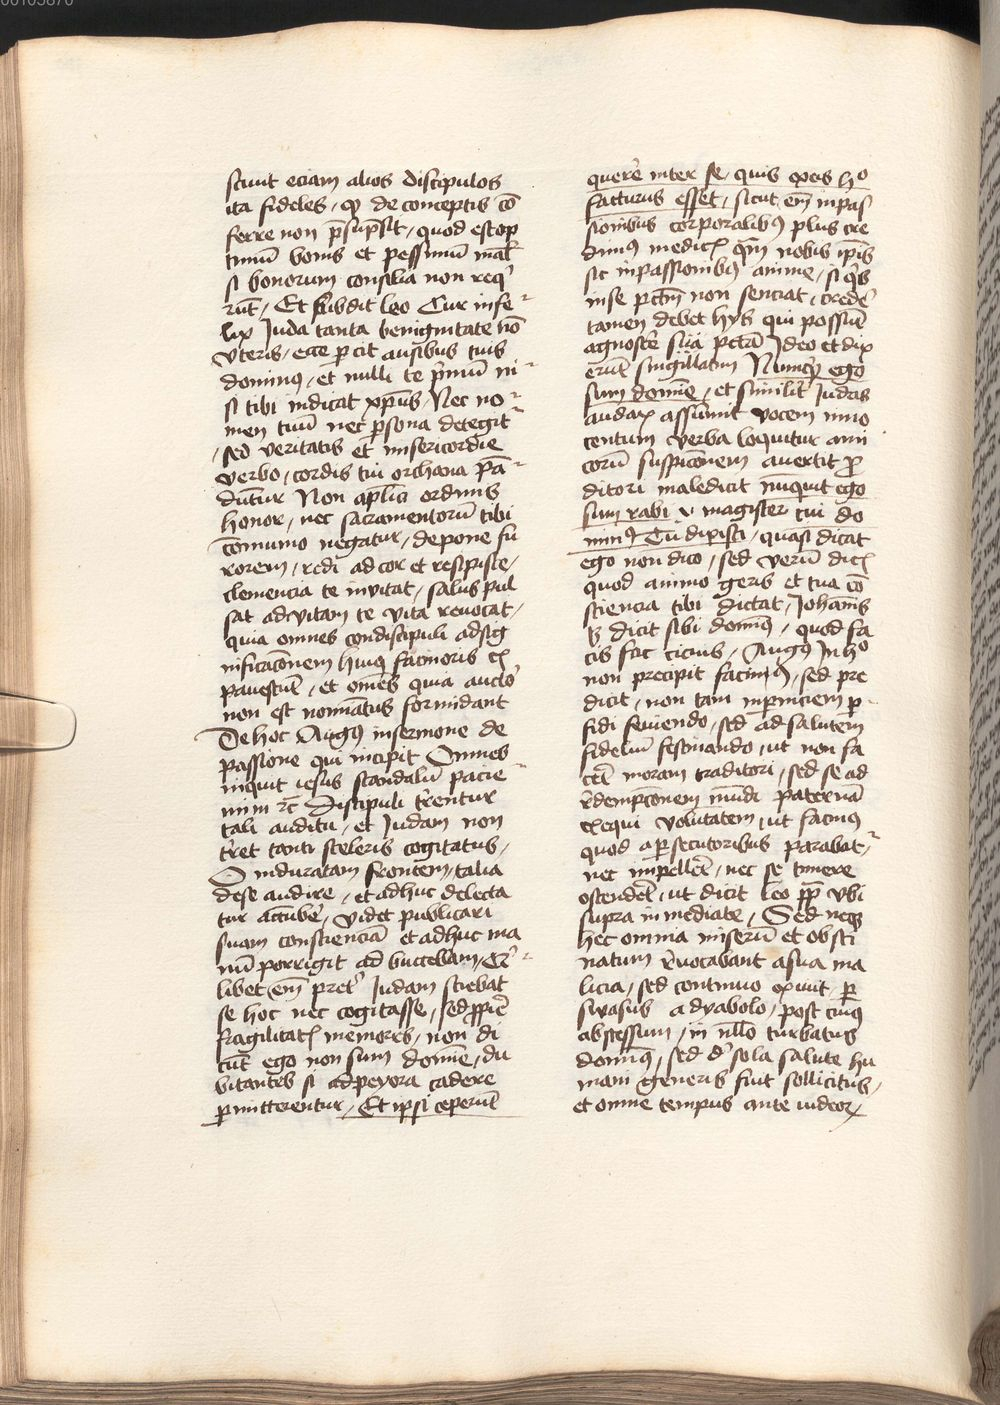 00105870
sciunt eciam alios discipulos
ita fideles, qꝫ de conceptis cō
ferre non p̄sūp̄sit, quod est op
timū bonis et pessimū mal̄
si bonorum consilia non req̄
rūt, Et subdit leo Cur infe⸗
lix Iuda tanta benignitate nō
vteris, ecce parcit ausibus tuis
dominꝰ, et nulli te p̄miū ni⸗
si tibi indicat xp̄us, Nec no⸗
men tuū nec ꝑsona detegit⸗
, sed veritatis et misericordie
verbo, cordis tui archana pā⸗
dūtur Non aplīci ordinis
honor, nec sacramentorū tibi
cōmunio negatur, depone fu
rorem, redi ad cor et resipisce,
clemencia te invitat, salus pul
sat ad vitam te vita reuocat,
quia omnes condiscipuli ad sig
nificacōnem huiꝰ facinoris ex
pauescūt, et omēs quia aucto᷑
non est nominatus formidant
De hoc Augꝰ in sermone de
passione qui incipit Omnes
inquit iesus scandalū pacie⸗
mini ⁊c̄ Discipuli t̄rentur
tali auditu, et Iudam non
t̄ret tanti sceleris cogitatus,
O induratam frontem, talia
de se audire, et adhuc delecta
tur accūbe᷑, videt publicari
suam conscienciā et adhuc ma
nū porrigit ad buccellam,
libet em̄ pret᷑ Iudam sciebat
se hoc nec cogitasse, sed ꝓp̄e
fragilitatꝭ memores, non di
cūt ego non sum domīe, du
bitantes si ad peyora cadere
ꝑmitterentur, Et ip̄si ceperūt
quere᷑ inter se, quis ex eis hᵒ
facturus esset, sicut em̄ in pas
sionibus corporalibꝰ plus cre
dimꝰ medicꝭ q̄m nobis ip̄is
sic in passionibꝰ anime, si q̄s
in se pctm̄ non senciat, crede᷑
tamen debet hys qui possūt
agnosce᷑ sua pctā Ideo et dix
erūt singillatim Nunqꝫ ego
sum domīe, et similit᷑ Iudas
audax assūmit vocem inno
centum verba loquitur ami
corū suspicōnem auertit ꝓ
ditori maledicit nūquit ego
sum rabi, v magister tui do
minꝰ Tu dixisti, quasi dicat
ego non dico, sed verū dicꝭ
quod animo geris et tua cō
sciencia tibi dictat, Iohānis
dicit sibi dominꝰ, quod fa
cis fac cicius, Augꝰ In hᵒ
non precipit facinꝰ, sed pre
dicit, non tam in ꝑniciem ꝑ⸗
fidi seuiendo, sed ad salutem
fideliū festinando, ut non fa
ce᷑t moram traditori, sed se ad
r̄dempcōnem mūdi paternā
exequi volūtatem, ut facinꝰ
quod a ꝑsecutoribus parabat⸗,
nec impelle᷑t, nec se timere
ostende᷑t, ut dicit leo pp̄ vbi
supra inmediate, Sed neqꝫ
hec omnia miserū et obsti
natum r̄uocabant a sua ma
licia, sed continuo exiuit, ꝑ
swasus a dyabolo, post cuiꝰ
abscessum, in nll̄o turbatus
dominꝰ, sed d᷑ sola salute hu
mani generis fuit sollicitus,
et omne tempus ante iudeoꝝ